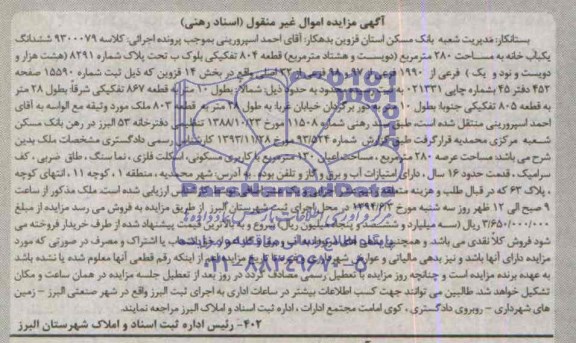 آگهی مزایده اموال غیر منقول (اسناد رهنی)
بستانکار: مدیریت شعبه بانک مسکن استان قزوین بدهکار: آقای احمد اسپرورینی بموجب پرونده اجرائی: کلاسه ۹۳۰۰۰۷۹ ششدانگ
یکباب خانه به مساحت ۲۸۰ مترمربع (دویست و هشتاد مترمربع) قطعه ۸۰۴ تفکیکی بلوک ب تحت پلاک شماره ۸۲۹۱ (هشت هزار و
دویست و نود و یک) فرعی از ۱۹۹۰ فرعی از اصلی واقع در بخش ۱۴ قزوین که ذیل ثبت شماره ۱۵۵۹۰ صفحه
۴۵۲ دفتر ۴۵ به شماره چاپی ۰۲۱۳۳۱ محدود به حدود ذیل: شمالا: بطول ۱۰ متر به قطعه ۸۶۷ تفکیکی شرقاً بطول ۲۸ متر
به قطعه ۸۰۵ تفکیکی جنوبا بطول ۱۰ متر گردان خیابان غربا: به طول متر به قطعه ۸۰۳ ملک مورد وثیقه مع الواسه به آقای
احمد اسپرورینی منتقل شده است. طبق سند رهنی شماره ۱۱۵۰۸ مورخ ۱۳۸۸/۱۰/۲۳ تنظیمی دفترخانه ۵۳ البرز در رهن بانک مسکن
شعبه مرکزی محمدیه قرار گرفت طبق گزارش شماره ۹۳/۵۳۴ مورخ ۱۳۹۳/۱۱/۲۸ کارشناس رسمی دادگستری مشخصات ملک بدین
شرح می باشد: مساحت عرصه ۲۸۰ مترمربع، مساحت اعیان ۱۳۰ مترمربع با کاربری مسکونی، اسکلت فلزی، نما سنگ، طاق ضربی، کف
سرامیک، قدمت حدود ۱۶ سال، دارای امتیازات آب و برق و گاز و تلفن بوده، به آدرس: شهر محمدیه، منطقه ۱، کوچه ۱۱، انتهای کوچه
، پلاک ۶۳ که در قبال طلب و هزینه ارزیابی شده است. ملک مذکور از ساعت
۹ صبح الی ۱۲ ظهر روز سه شنبه مورخ در محل اجرای ثبت شهرستان البرز از طریق مزایده به فروش می رسد مزایده از مبلغ
۳/۶۵۰/۰۰۰/۰۰۰ ریال (سه میلیارد و ششصد و پنجاه میلیون ریال) شروع و به بالاترین قیمت پیشنهاد شده از طرف خریدار فروخته می
شود فروش کلاً نقدی می باشد. و همچنین یا اشتراک و مصرف در صورتی که مورد
مزایده دارای آنها باشد و نیز بدهی مالیاتی و عوارض شهرداری اعم از اینکه رقم قطعی آنها معلوم شده یا نشده باشد
به عهده برنده مزایده است و چنانچه روز مزایده با تعطیل رسمی مصادف گردد در روز بعد از تعطیل جلسه مزایده در همان ساعت و مکان
تشکیل خواهد شد. طالبین می توانند جهت کسب اطلاعات بیشتر در ساعات اداری به اجرای ثبت البرز واقع در شهر صنعتی البرز – زمین
های شهرداری – روبروی دادگستری، کوی امامت مجتمع ادارات، اداره ثبت اسناد و املاک البرز مراجعه نمایند.
۴۰۲- رئیس اداره ثبت اسناد و املاک شهرستان البرز
ParsNamadData
۰۲۱-۸۸۳۴۹۶۷۰-۵